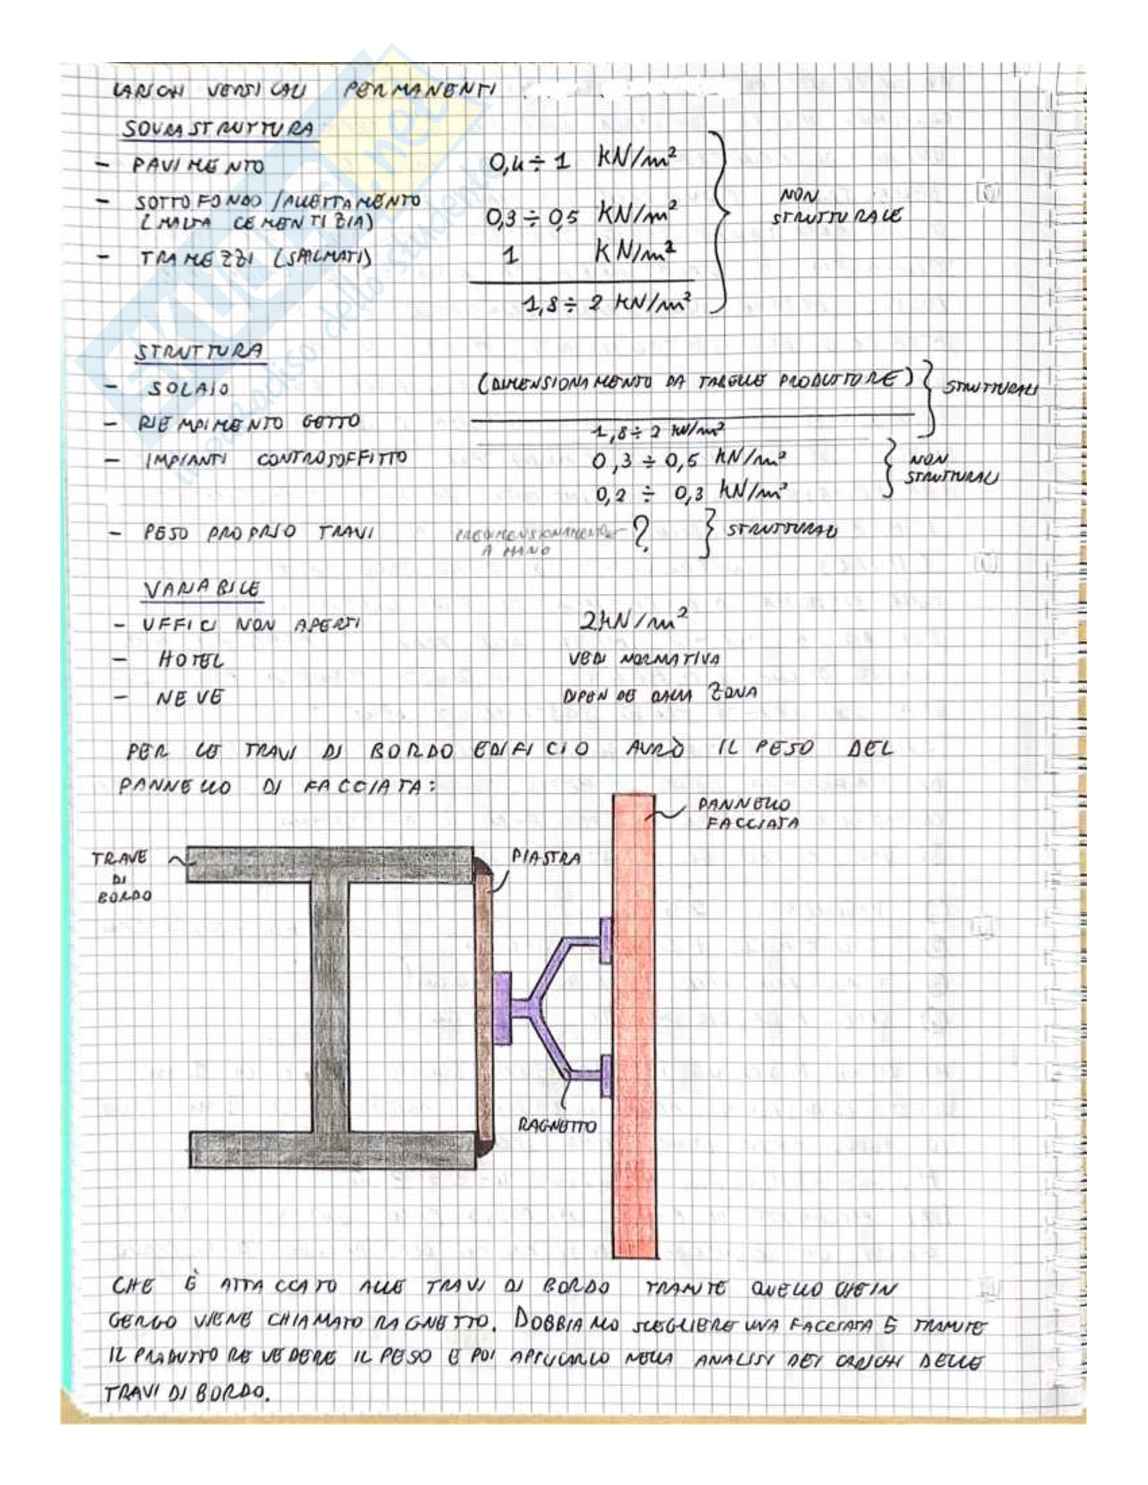 CARICHI VERTICALI PERMANENTI
SOVRASTRUTTURA
- PAVIMENTO 0,4 ÷ 1 KN/m²
- SOTTOFONDO/ALLETTAMENTO
(MALTA CEMENTIZIA) 0,3 ÷ 0,5 KN/m²
- TRAMEZZI (SPALMATI) 1 KN/m²
1,8 ÷ 2 KN/m²
NON
STRUTTURALE
STRUTTURA
- SOLAIO (DIMENSIONAMENTO DA TABELLE PRODUTTORE)
- RIEMPIMENTO GETTO
1,8 ÷ 2 KN/m²
STRUTTURALI
- IMPIANTI CONTROSOFFITTO 0,3 ÷ 0,5 KN/m²
0,2 ÷ 0,3 KN/m²
NON
STRUTTURALI
- PESO PROPRIO TRAVI PREDIMENSIONAMENTO ? STRUTTURALI
A MANO
VARIABILE
- UFFICI NON APERTI 2KN/m²
- HOTEL VEDI NORMATIVA
- NEVE DIPENDE DALLA ZONA
PER LE TRAVI DI BORDO EDIFICIO AVRÒ IL PESO DEL
PANNELLO DI FACCIATA:
PANNELLO
FACCIATA
TRAVE
DI
BORDO
PIASTRA
RAGNETTO
CHE È ATTACCATO ALLE TRAVI DI BORDO TRAMITE QUELLO CHE IN
GERGO VIENE CHIAMATO RAGNETTO. DOBBIAMO SCEGLIERE UNA FACCIATA E TRAMITE
IL PRODUTTORE VEDERE IL PESO E POI APPLICARLO NELLA ANALISI DEI CARICHI DELLE
TRAVI DI BORDO.